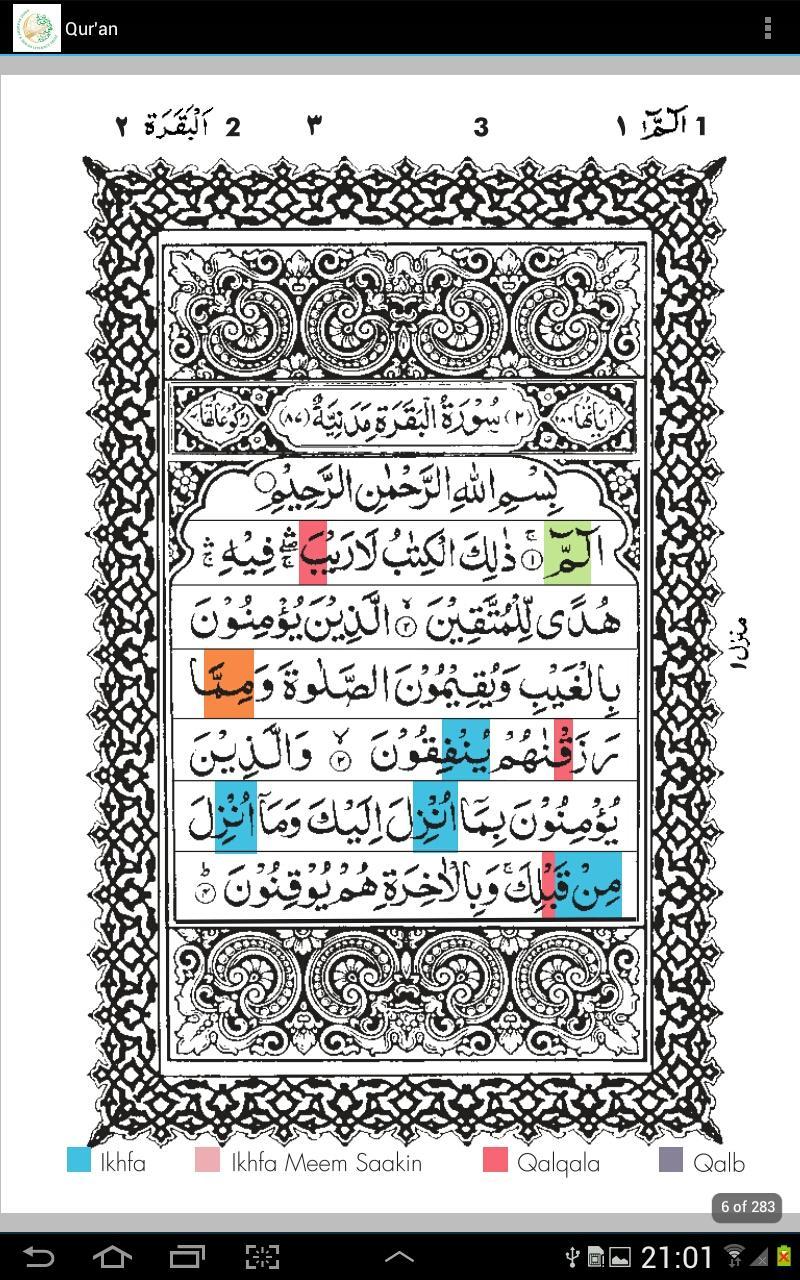 Qur'an
٢ اَلْبَقَرَة 2 ٣ 3 ١ الٓمّٓ 1
اٰيَاتُهَا (٢) سُوْرَةُ الْبَقَرَةِ مَدَنِيَّةٌ (٨٧) رُكُوْعَاتُهَا
بِسْمِ اللّٰهِ الرَّحْمٰنِ الرَّحِيْمِ
الٓمّٓ ۚ ١ ذٰلِكَ الْكِتٰبُ لَا رَيْبَ ۛۖۚ فِيْهِ ۛۚ
هُدًى لِّلْمُتَّقِيْنَ ۙ ٢ الَّذِيْنَ يُؤْمِنُوْنَ
بِالْغَيْبِ وَيُقِيْمُوْنَ الصَّلٰوةَ وَمِمَّا
رَزَقْنٰهُمْ يُنْفِقُوْنَ ۙ ٣ وَالَّذِيْنَ
يُؤْمِنُوْنَ بِمَآ اُنْزِلَ اِلَيْكَ وَمَآ اُنْزِلَ
مِنْ قَبْلِكَ ۚ وَبِالْاٰخِرَةِ هُمْ يُوْقِنُوْنَ ؕ ٤
منزل ١
Ikhfa Ikhfa Meem Saakin Qalqala Qalb
6 of 283
21:01